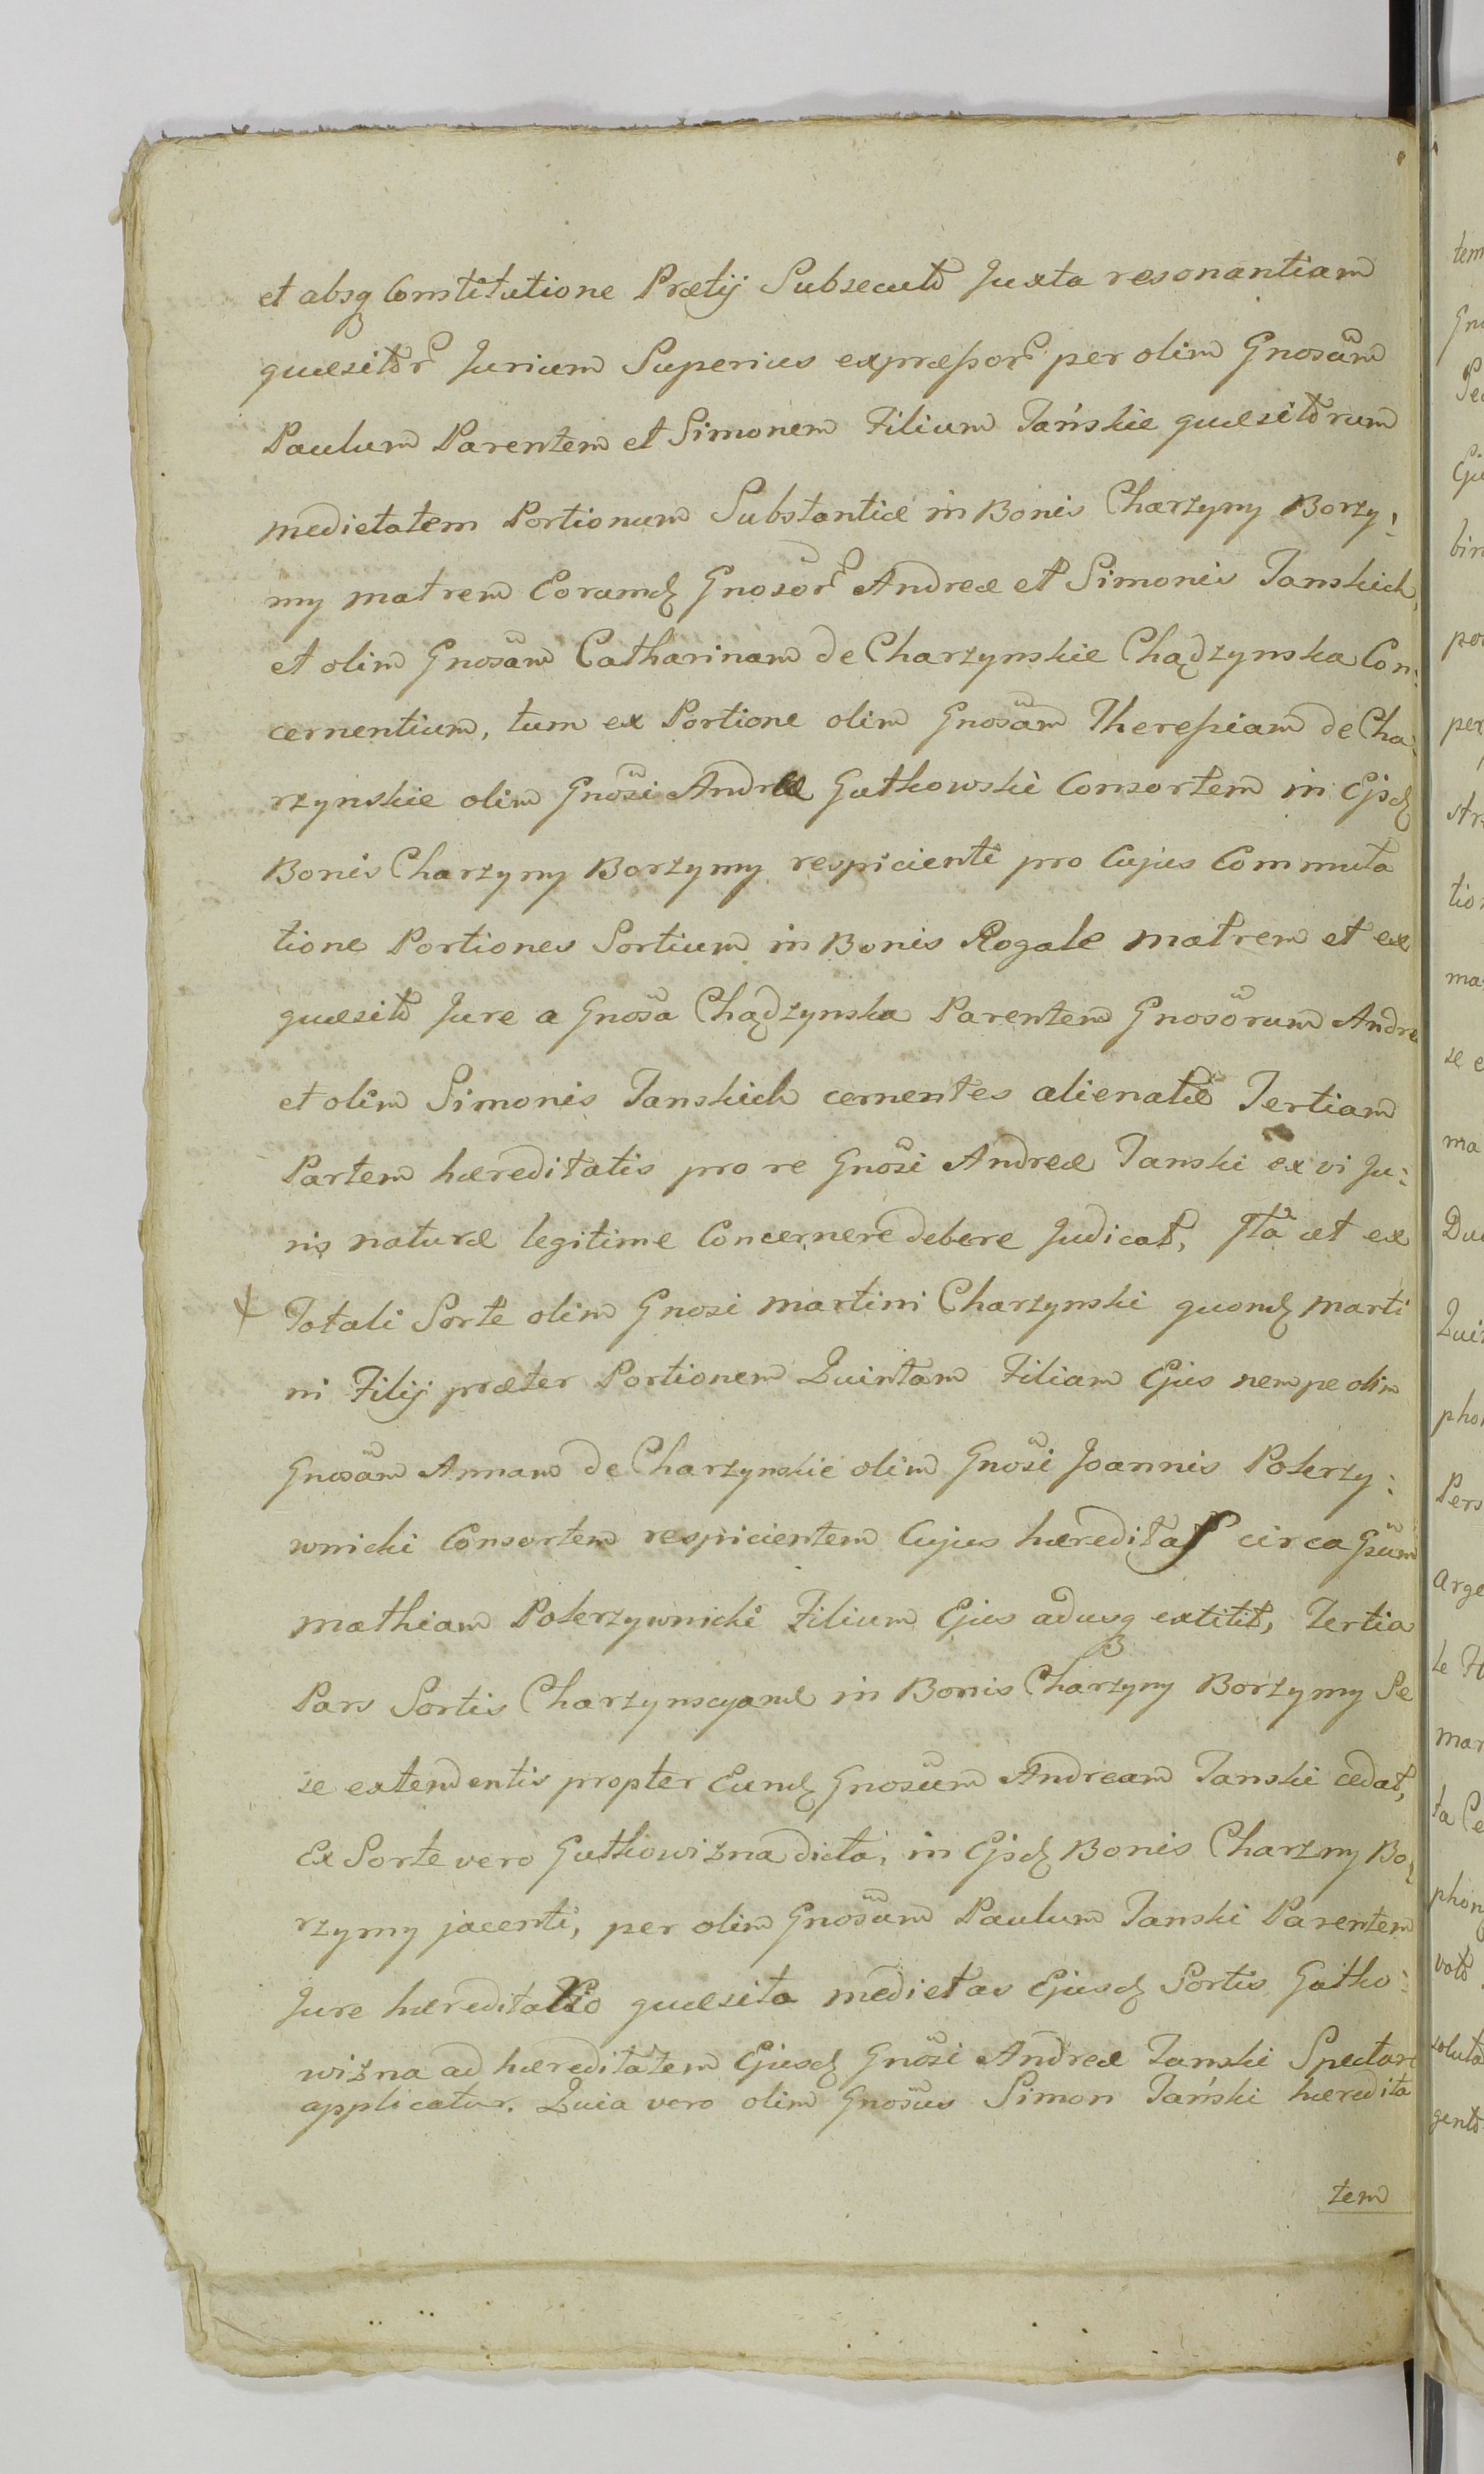 et absq Constitutione Prætij Subsecuto Juxta resonantiam
quæsitor Jurium Superius expreßor per olim Gnosum
Paulum Parentem et Simonem Filium Tańskie quæsitorum
medietatem Portionum Substantiæ in Bonis Charzyny Borzy:
my matrem Eorumd Gnosor Andreæ et Simonis Tanskich,
et olim Gnosam Catharinam de Charzynskie Chądzynska Con:
cernentium, tum ex Portione olim Gnosam Thereßiam de Cha:
rzynskie olim Gnosi Andreæ Gutkowski Consortem in Ejsd
Bonis Charzyny Borzymy respicienti pro Cujus Commuta
tione Portiones Sortium in Bonis Rogale matrem et ex
quæsito Jure a Gnosa Chądzynska Parentem Gnosorum Andreæ
et olim Simonis Tanskich cernentes alienatis Tertiam
Partem hæreditatis pro re Gnosi Andreæ Tanski ex vi Ju:
ris naturæ legitime Concernere debere Judicat, Ita et ex
Totali Sorte olim Gnosi Martini Charzynski quond Marti
ni Filij præter Portionem Quintam Filiam Ejus nempe olim
Gnosam Annam de Charzynskie olim Gnosi Joannis Pokrzy:
wnicki Consortem respicientem Cujus hæreditas circa Gsum
Mathiam Pokrzywnicki Filium Ejus adusq extitit, Tertia
Pars Sortis Charzynscyand in Bonis Charzyny Borzymy Se
se extendentis propter Eund Gnosum Andream Tanski cedat,
Ex Sorte vero Gutkowizna dicta, in Ejsd Bonis Charzny Bo:
rzymy jacenti, per olim Gnosum Paulum Tanski Parentem
Jure hæreditario quæsita medietas Ejusd Sortis Gutko:
wizna ad hæreditatem Ejusd Gnosi Andreæ Tanski Spectare
applicatur. Quia vero olim Gnosus Simon Tański hæredita
tem